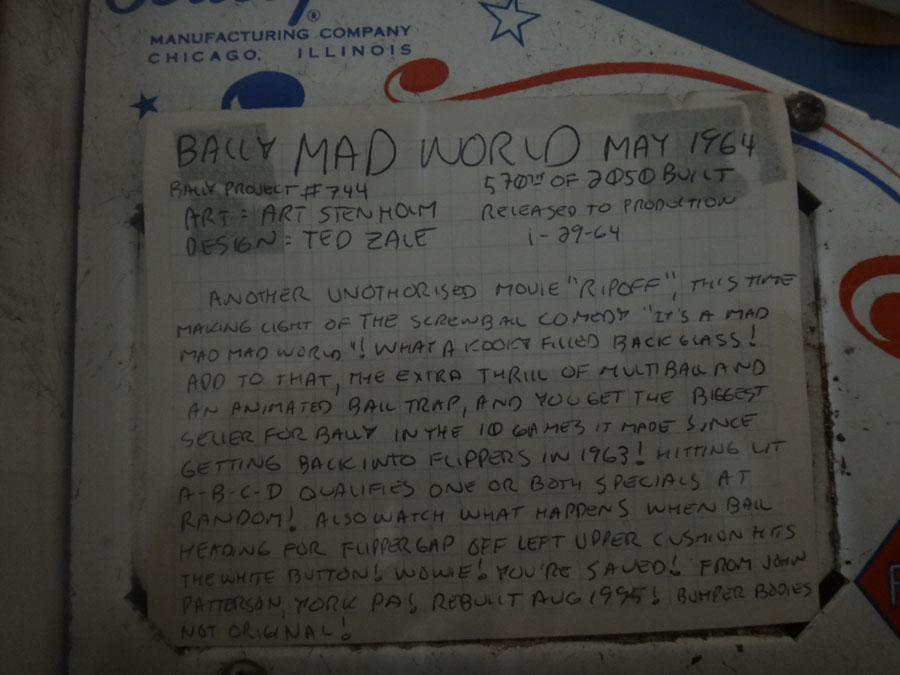 Bally®
MANUFACTURING COMPANY
CHICAGO, ILLINOIS
BALLY MAD WORLD MAY 1964
BALLY PROJECT #744 570TH OF 2050 BUILT
ART = ART STENHOLM RELEASED TO PRODUCTION
DESIGN = TED ZALE 1-29-64
ANOTHER UNOTHORISED MOVIE "RIPOFF", THIS TIME
MAKING LIGHT OF THE SCREWBALL COMEDY "IT'S A MAD
MAD MAD WORLD"! WHAT A KOOKY FILLED BACKGLASS!
ADD TO THAT, THE EXTRA THRILL OF MULTIBALL AND
AN ANIMATED BALL TRAP, AND YOU GET THE BIGGEST
SELLER FOR BALLY IN THE 10 GAMES IT MADE SINCE
GETTING BACK INTO FLIPPERS IN 1963! HITTING LIT
A-B-C-D QUALIFIES ONE OR BOTH SPECIALS AT
RANDOM! ALSO WATCH WHAT HAPPENS WHEN BALL
HEADING FOR FLIPPER GAP OFF LEFT UPPER CUSHION HITS
THE WHITE BUTTON! WOWIE! YOU'RE SAVED! FROM JOHN
PATTERSON, YORK PA! REBUILT AUG 1995! BUMPER BODIES
NOT ORIGINAL!